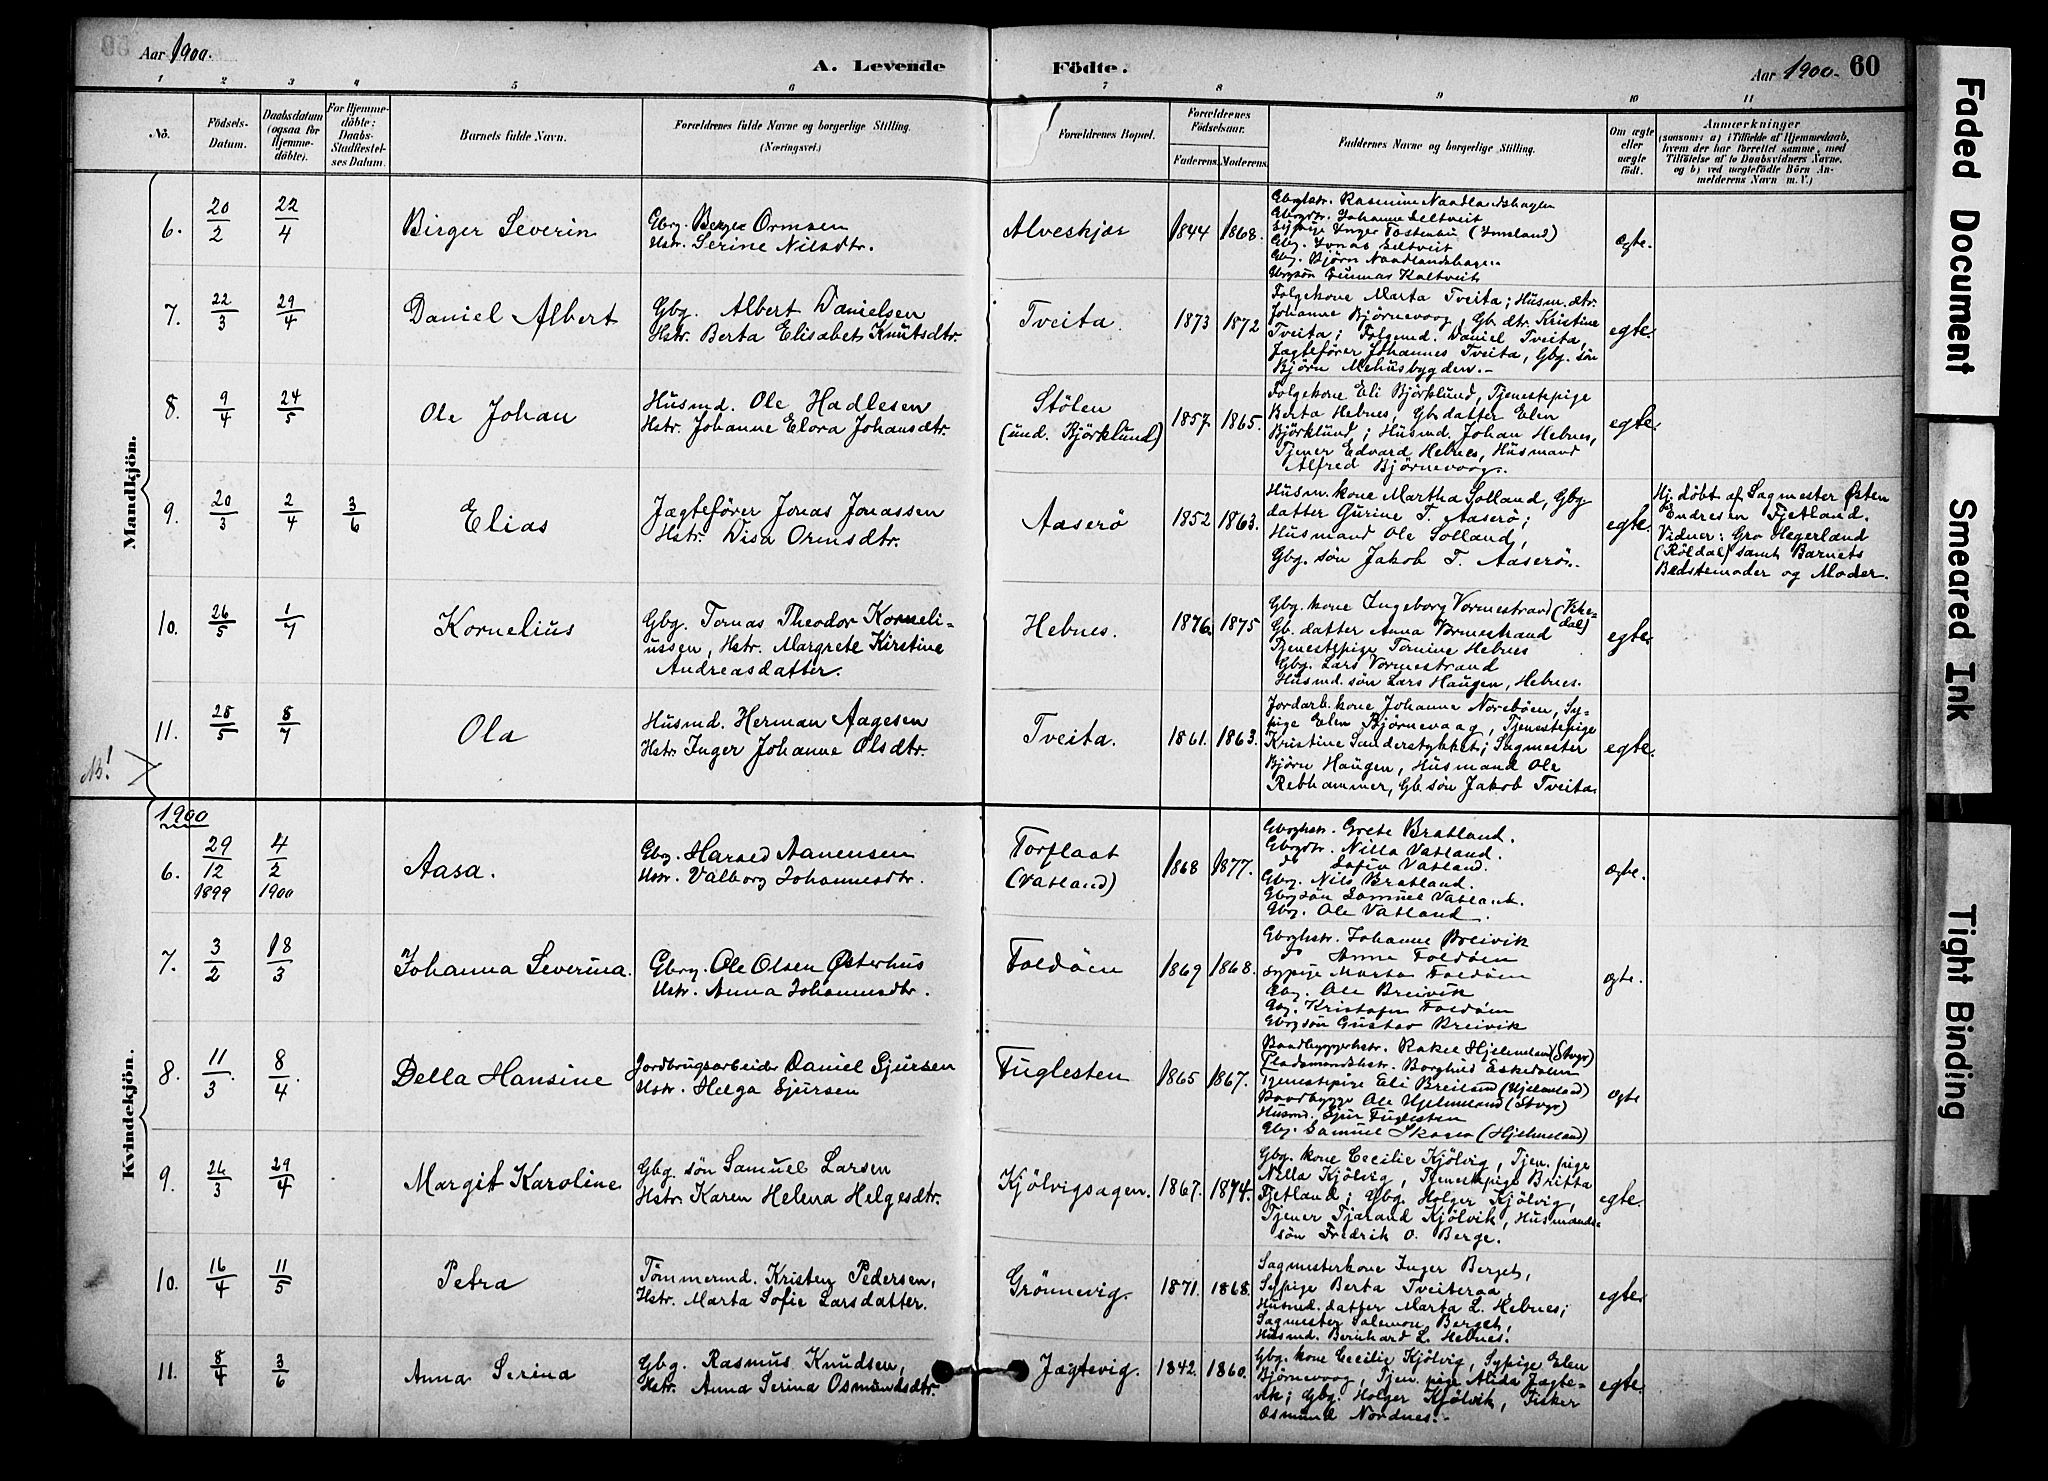 Aar 1900.
A. Levende Födte.
Aar 1900. 60
1 2 3 4 5 6 7 8 9 10 11
No.
Födsels-Datum.
Daabsdatum (ogsaa for Hjemme-döbte).
For Hjemme-döbte: Daabs-Stadfæstel-ses Datum.
Barnets fulde Navn.
Forældrenes fulde Navne og borgerlige Stilling.
(Næringsvei.)
Forældrenes Bopæl.
Forældrenes Födselsaar.
Faderens. Moderens.
Faddernes Navne og borgerlige Stilling.
Om ægte eller uægte födt.
Anmærkninger
(saasom: a) i Tilfælde af Hjemmedaab,
hvem der har forrettet samme, med
Tilföielse af to Daabsvidners Navne,
og b) ved uægtefödte Börn An-
melderens Navn m. V.)
Mandkjön.
6. 20/2 22/4 Birger Severin
Gbrg. Berge Ormsen
Hstr. Serine Nilsdtr.
Alveskjær 1844 1868.
Gbrghstr. Rasmine Naadlandshagen
Gbrgdtr. Johanne Seltveit
Sypige Inger Tostenbu (Imsland)
Gbg. Jonas Seltveit
Gbg. Bjørn Naadlandshagen
Gbrgsön Gunnar Kaltveit
ægte.
7. 22/3 29/4 Daniel Albert
Gbg. Albert Danielsen
Hstr. Berta Elisabet Knutsdtr.
Tveita. 1873 1872
Folgekone Marta Tveita; Husm. dtr.
Johanne Bjørnevoog, Gb. dtr. Kristine
Tveita; Folgemd. Daniel Tveita,
Jægtefører Johannes Tveita, Gbg. søn
Bjørn Mehusbygden.-
egte.
8. 9/4 24/5 Ole Johan
Husmd. Ole Hadlesen
Hstr. Johanne Elora Johansdtr.
Stölen
(und. Bjørklund) 1857. 1865.
Folgekone Eli Björklund, Tjenestepige
Berta Hebnes, Gb. datter Elen
Björklund; Husmd. Johan Hebnes,
Tjener Edvard Hebnes, Husmand
Alfred Bjørnevoog.
egte.
9. 20/3 2/4 3/6 Elias
Jægtefører Jonas Jonassen
Hstr. Disa Ormsdtr.
Aaserö 1852 1863.
Husm. kone Martha Solland, Gbg
datter Gurine T. Aaserö;
Husmand Ole Solland,
Gbg. søn Jakob T. Aaserö.
egte.
Hj. døbt af Sagmester Østen
Endresen Fjetland.
Vidner: Gro Hegerland
(Röldal) samt Barnets
Bedstemoder og Moder.
10. 26/5 1/7 Kornelius
Gbg. Tornas Theodor Korneli-
ussen, Hstr. Margrete Kirstine
Andreasdatter.
Hebnes. 1876. 1875
Gbg. kone Ingeborg Vormestrand (Vike-
dal)
Gb. datter Anna Vormestrand
Tjenestepige Tornine Hebnes
Gbg. Lars Vormestrand
Husmd. søn Lars Haugen, Hebnes.
egte.
11. 28/5 8/7 Ola
Husmd. Herman Aagesen
Hstr. Inger Johanne Olsdtr.
Tveita. 1861. 1863.
Jordarb. kone Johanne Norebøen, Sy-
pige Elen Bjørnevaag, Tjenestepige
Kristine Sanderstykket; Sagmester
Bjørn Haugen, Husmand Ole
Rebhammer, Gb. søn Jakob Tveita
egte.
NB!
Kvindekjön.
1900
6. 29/12 1899 4/2 1900 Aasa.
Gbg. Harald Aanensen
Hstr. Valborg Johannesdtr.
Torflaat
(Vatland) 1868 1877.
Gbrghstr. Grete Bratland.
Gbrgdtr. Nilla Vatland.
do Sofia Vatland.
Gbrg. Nils Bratland.
Gbrgsön Samuel Vatland.
Gbrg. Ole Vatland.
ægte.
7. 3/2 18/3 Johanna Severina.
Gbrg. Ole Olsen Østerhus
Hstr. Anna Johannesdtr.
Foldöen 1869 1868.
Gbrghstr. Johanne Breivik
do Anne Foldöen
Sypige Marta Foldöen
Gbg. Ole Breivik
Gbg. Kristofer Foldöen
Gbrgsön Gustav Breivik
ægte.
8. 11/3. 8/4. Della Hansine
Jordbrugsarbeider Daniel Sjursen
Hstr. Helga Sjursen
Fuglesten 1865 1867.
Baadbyggerhstr. Rakel Hjelmeland (Stvgr)
Pladsmandshstr. Borghild Eskedalen
Tjenestepige Eli Breiland (Hjelmeland)
Baadbygge Ole Hjelmeland (Stvgr)
Husmd. Sjur Fuglesten
Gbg. Samuel Skogen (Hjelmeland)
ægte
9. 26/3 29/4 Margit Karoline
Gbg. søn Samuel Larsen
Hstr. Karen Helena Helgesdtr.
Kjölvigsagen. 1867. 1874.
Gbg. kone Cecilie Kjölvig, Tjen. pige
Nilla Kjölvig, Tjenestepige Britta
Fjetland; Gbg. Holger Kjölvig,
Tjener Tjærand Kjölvik, Husmands-
søn Fredrik O. Berge.
egte.
10. 16/4 11/5 Petra
Tömmermd. Kristen Pedersen,
Hstr. Marta Sofie Larsdatter.
Grönnevig. 1871. 1868.
Sagmesterkone Inger Berget,
Sypige Berta Tveiteraa,
Husmd. datter Marta L. Hebnes;
Sagmester Salemon Berget,
Husmd. Bernhard L. Hebnes.
egte.
11. 8/4 3/6 Anna Serina
Gbg. Rasmus Knudsen,
Hstr. Anna Serina Osmundsdtr.
Jægtevig. 1842. 1860.
Gbg. kone Cecilie Kjölvig, Sypige Elen
Bjørnevoog, Tjen. pige Alida Jægte-
vik; Gbg. Holger Kjölvik, Fisker
Osmund Nordnes.-
egte.
Faded Document
Smeared Ink
Tight Binding